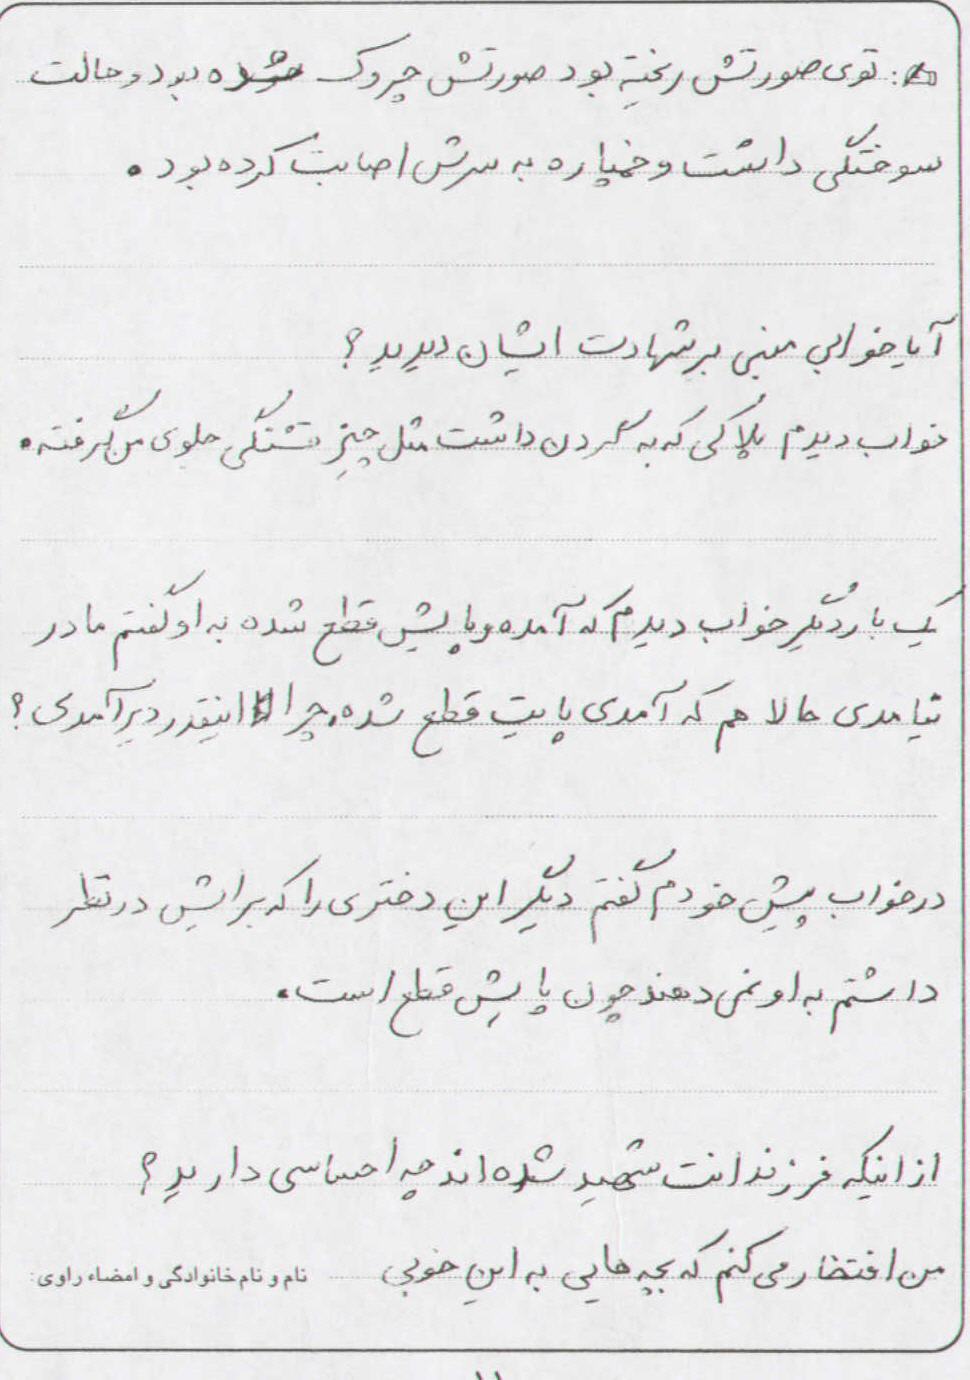 ج: توی صورتش ریخته بود صورتش چروک شده بود و حالت
سوختگی داشت و خمپاره به سرش اصابت کرده بود.
آیا خوابی مبنی بر شهادت ایشان دیدید؟
خواب دیدم پلاکی که به گردن داشت مثل چیز قشنگی جلوی من گرفته.
یک بار دیگر خواب دیدم که آمده و پایش قطع شده به او گفتم مادر
نیامدی حالا هم که آمدی پایت قطع شده. چرا اینقدر دیر آمدی؟
در خواب پیش خودم گفتم دیگر این دختری را که برایش در نظر
داشتم به او نمی دهند چون پایش قطع است.
از اینکه فرزندانت شهید شده اند چه احساسی دارید؟
من افتخار می کنم که بچه هایی به این خوبی
نام و نام خانوادگی و امضاء راوی: